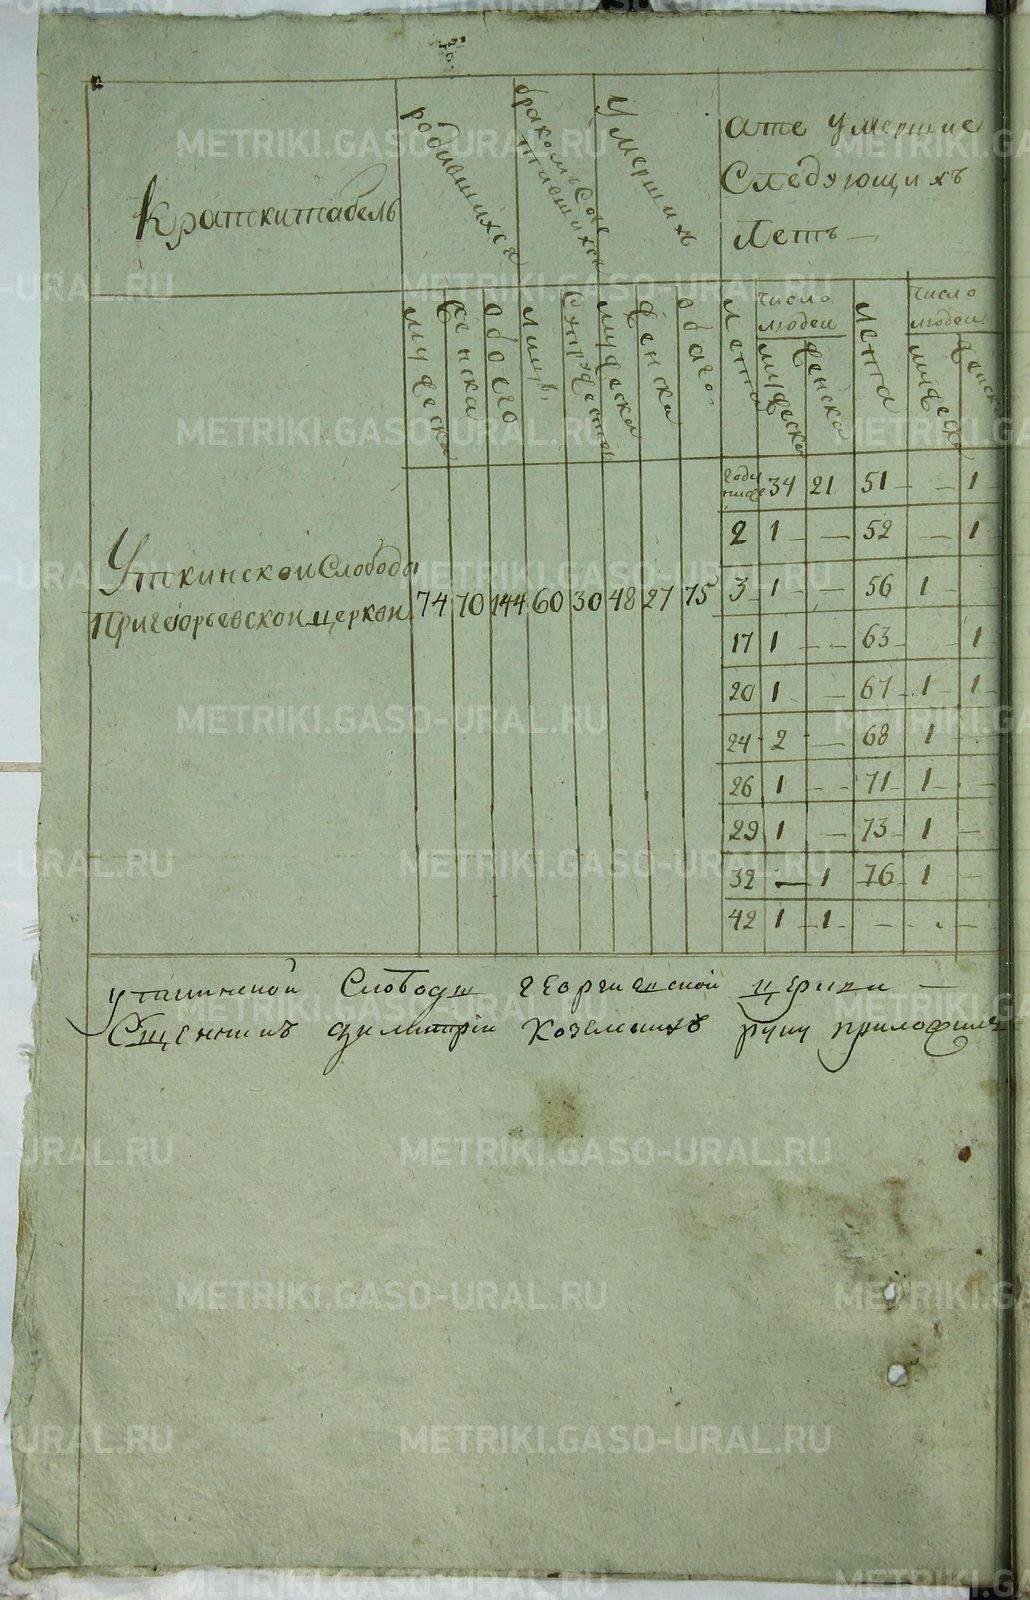 Краткитабель
родившихся
бракомъ соче
тавшихся
Умершихъ
ате умершие
Следующихъ
Летъ
мужеска
женска
обоего
лицъ
Супружества
мужеска
женска
обаго
Лета
число
людей
мужеска
женска
Лета
число
людей
мужеска
женска
Уткинской Слободы
Пригеоргевской церкви
74 70 144 60 30 48 27 75
годи 34 21 51 — — 1
2 1 — — 52 — 1
3 1 — — 56 1 —
17 1 — — 63 — 1
20 1 — 67 1 1
24 2 — 68 1 —
26 1 — — 71 1 —
29 1 — 73 1 —
32 — 1 76 1 —
42 1 1 — — —
уткинской Слободы георгиевской церкви —
Сщенникъ димитрии Козелскихъ руку приложилъ
METRIKI.GASO-URAL.RU